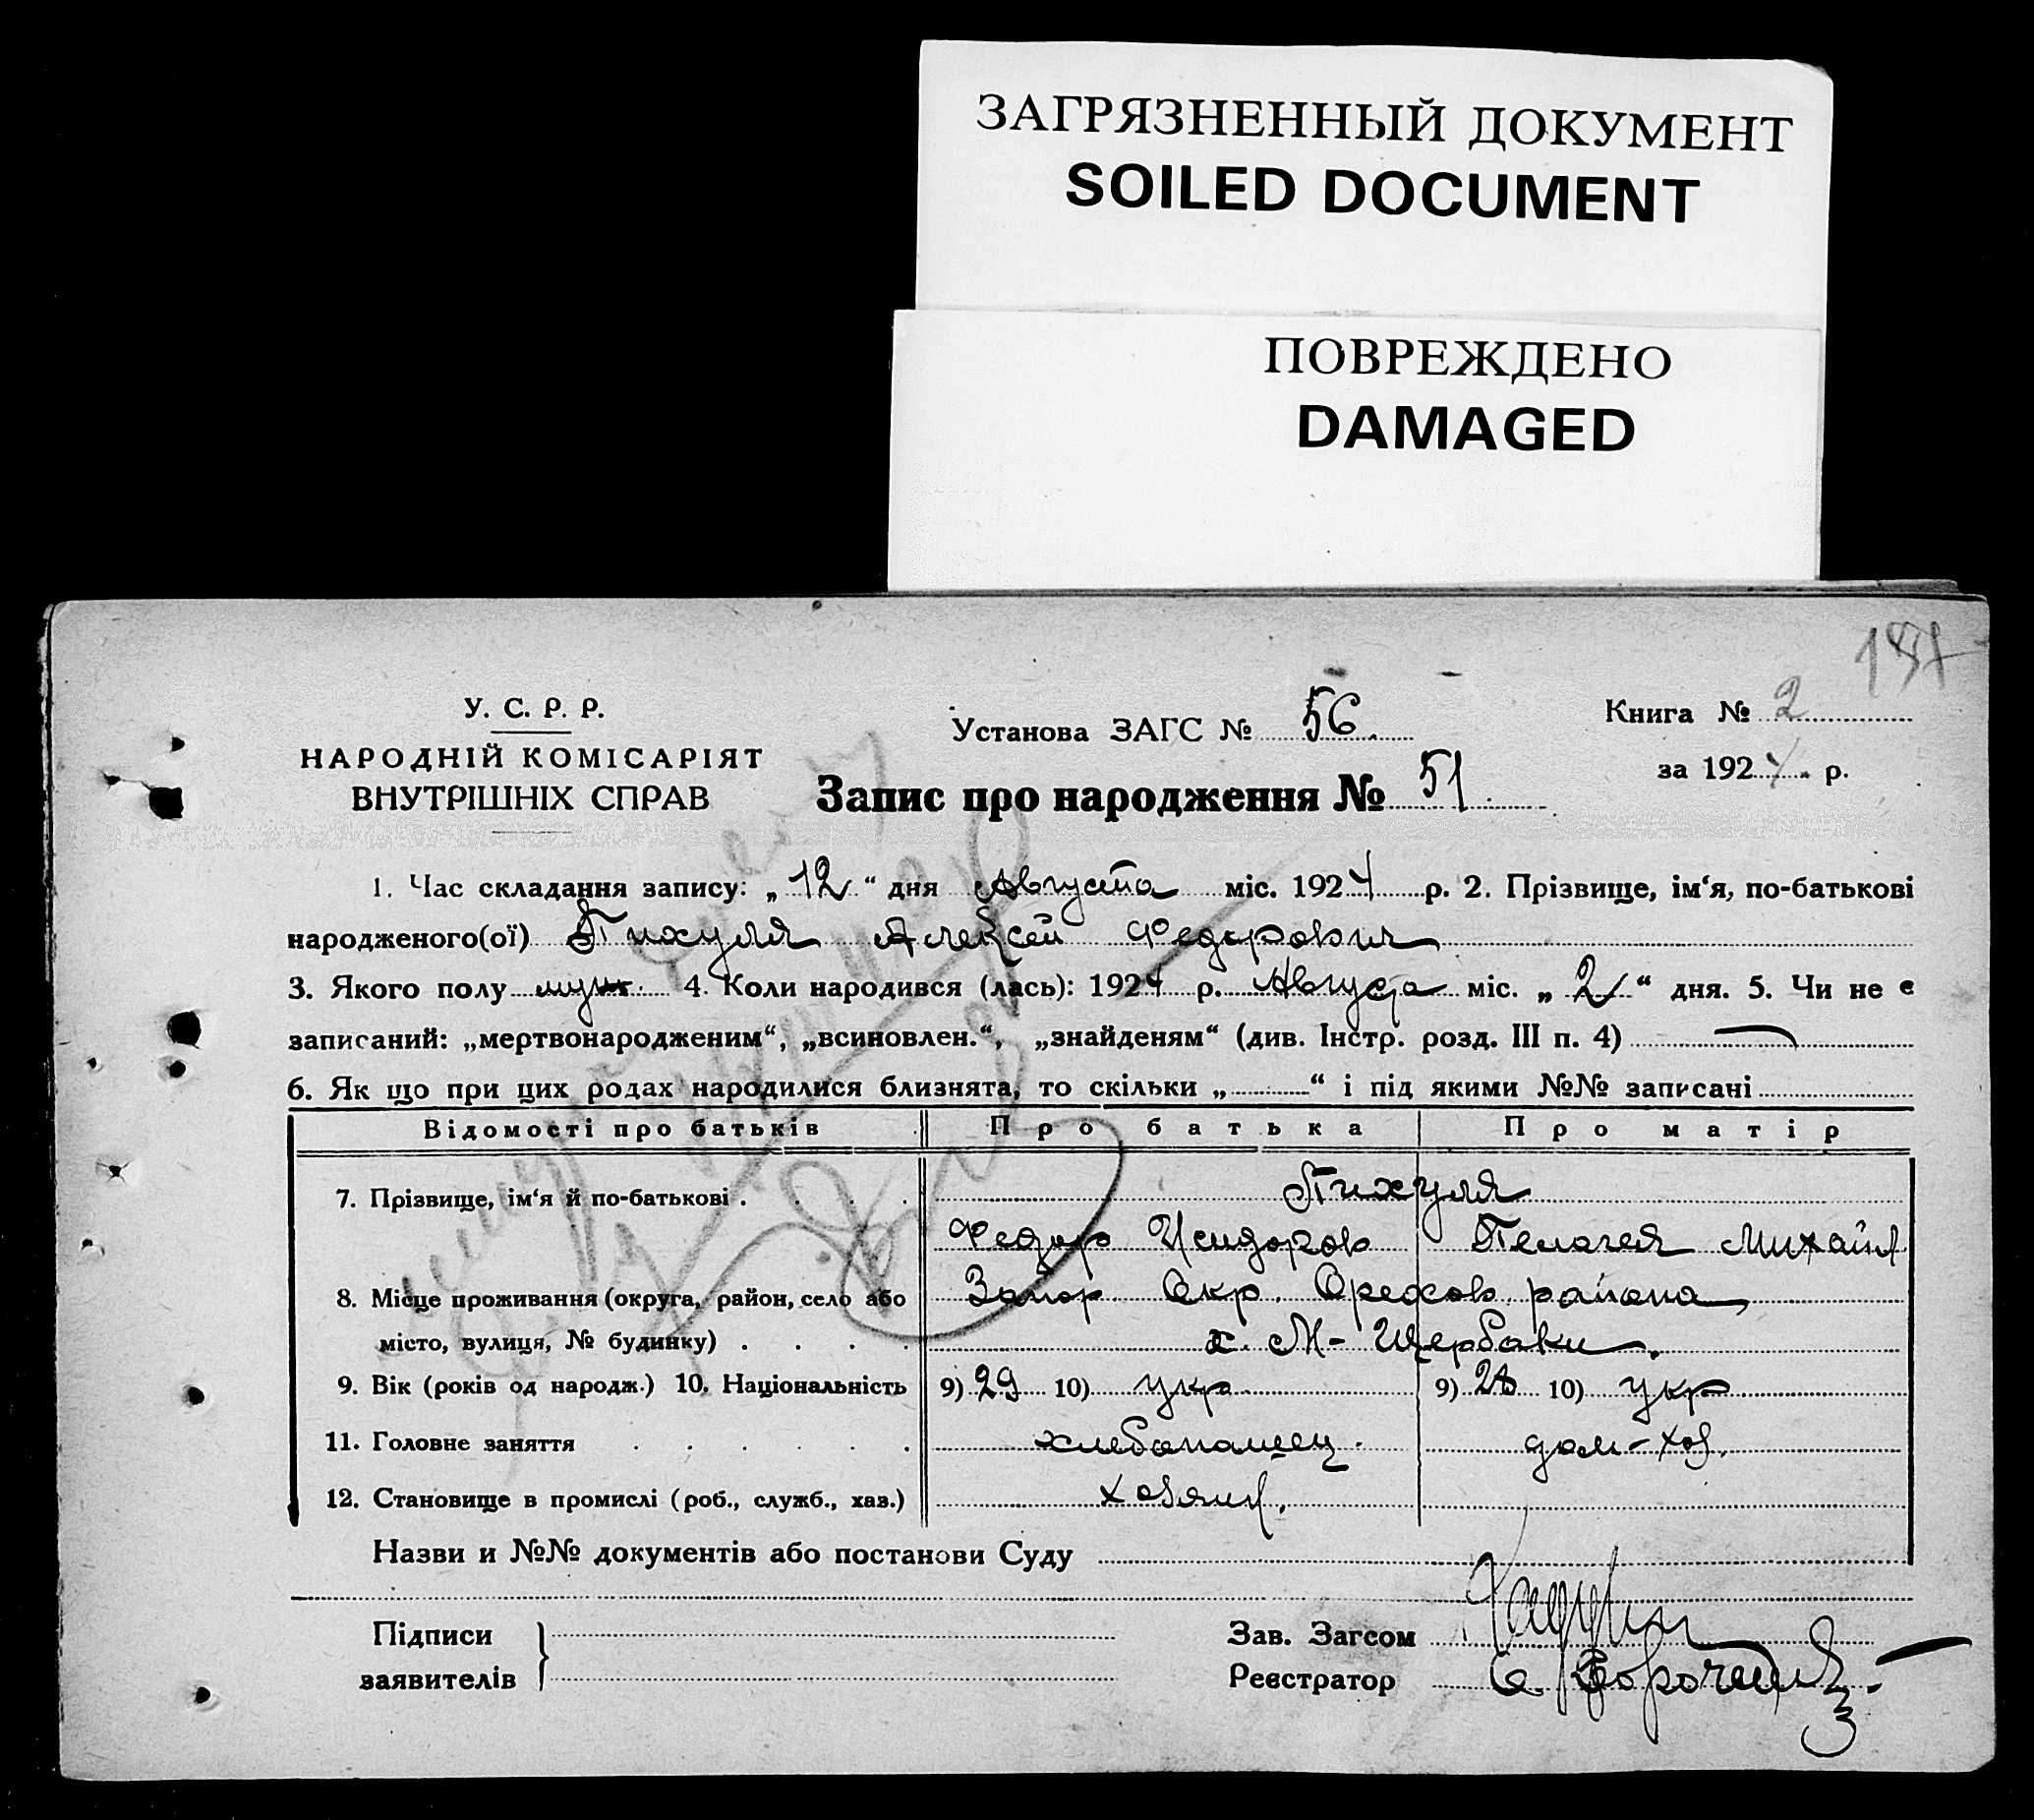 ЗАГРЯЗНЕННЫЙ ДОКУМЕНТ
SOILED DOCUMENT
ПОВРЕЖДЕНО
DAMAGED
У. С. Р. Р.
НАРОДНІЙ КОМІСАРІЯТ
ВНУТРІШНІХ СПРАВ
Установа ЗАГС № 56.
Книга № 2
за 1924 р.
Запис про народження № 51
1. Час складання запису: „12“ дня Августа міс. 1924 р. 2. Прізвище, ім‘я, по-батькові
народженого(ої) Пихуля Алексей Федорович
3. Якого полу муж. 4. Коли народився (лась): 1924 р. Августа міс. „2“ дня. 5. Чи не є
записаний: „мертвонародженим“, „всиновлен.“, „знайденям“ (див. Інстр. розд. III п. 4) —
6. Як що при цих родах народилися близнята, то скільки „ “ і під якими №№ записані
Відомості про батьків Про батька Про матір
7. Прізвище, ім‘я й по-батькові . . . . Пихуля
Федор Исидоров Пелагея Михайл
8. Місце проживання (округа, район, село або Запор. Окр. Орехов. района
місто, вулиця, № будинку) . . . . х. М-Щербаки.
9. Вік (років од народж.) 10. Національність 9) 29 10) укр 9) 28 10) укр
11. Головне заняття . . . . . . хлебопашец. дом-хоз.
12. Становище в промислі (роб., служб., хаз.) хозяин.
Назви и №№ документів або постанови Суду
Підписи
заявителів
Зав. Загсом
Реєстратор